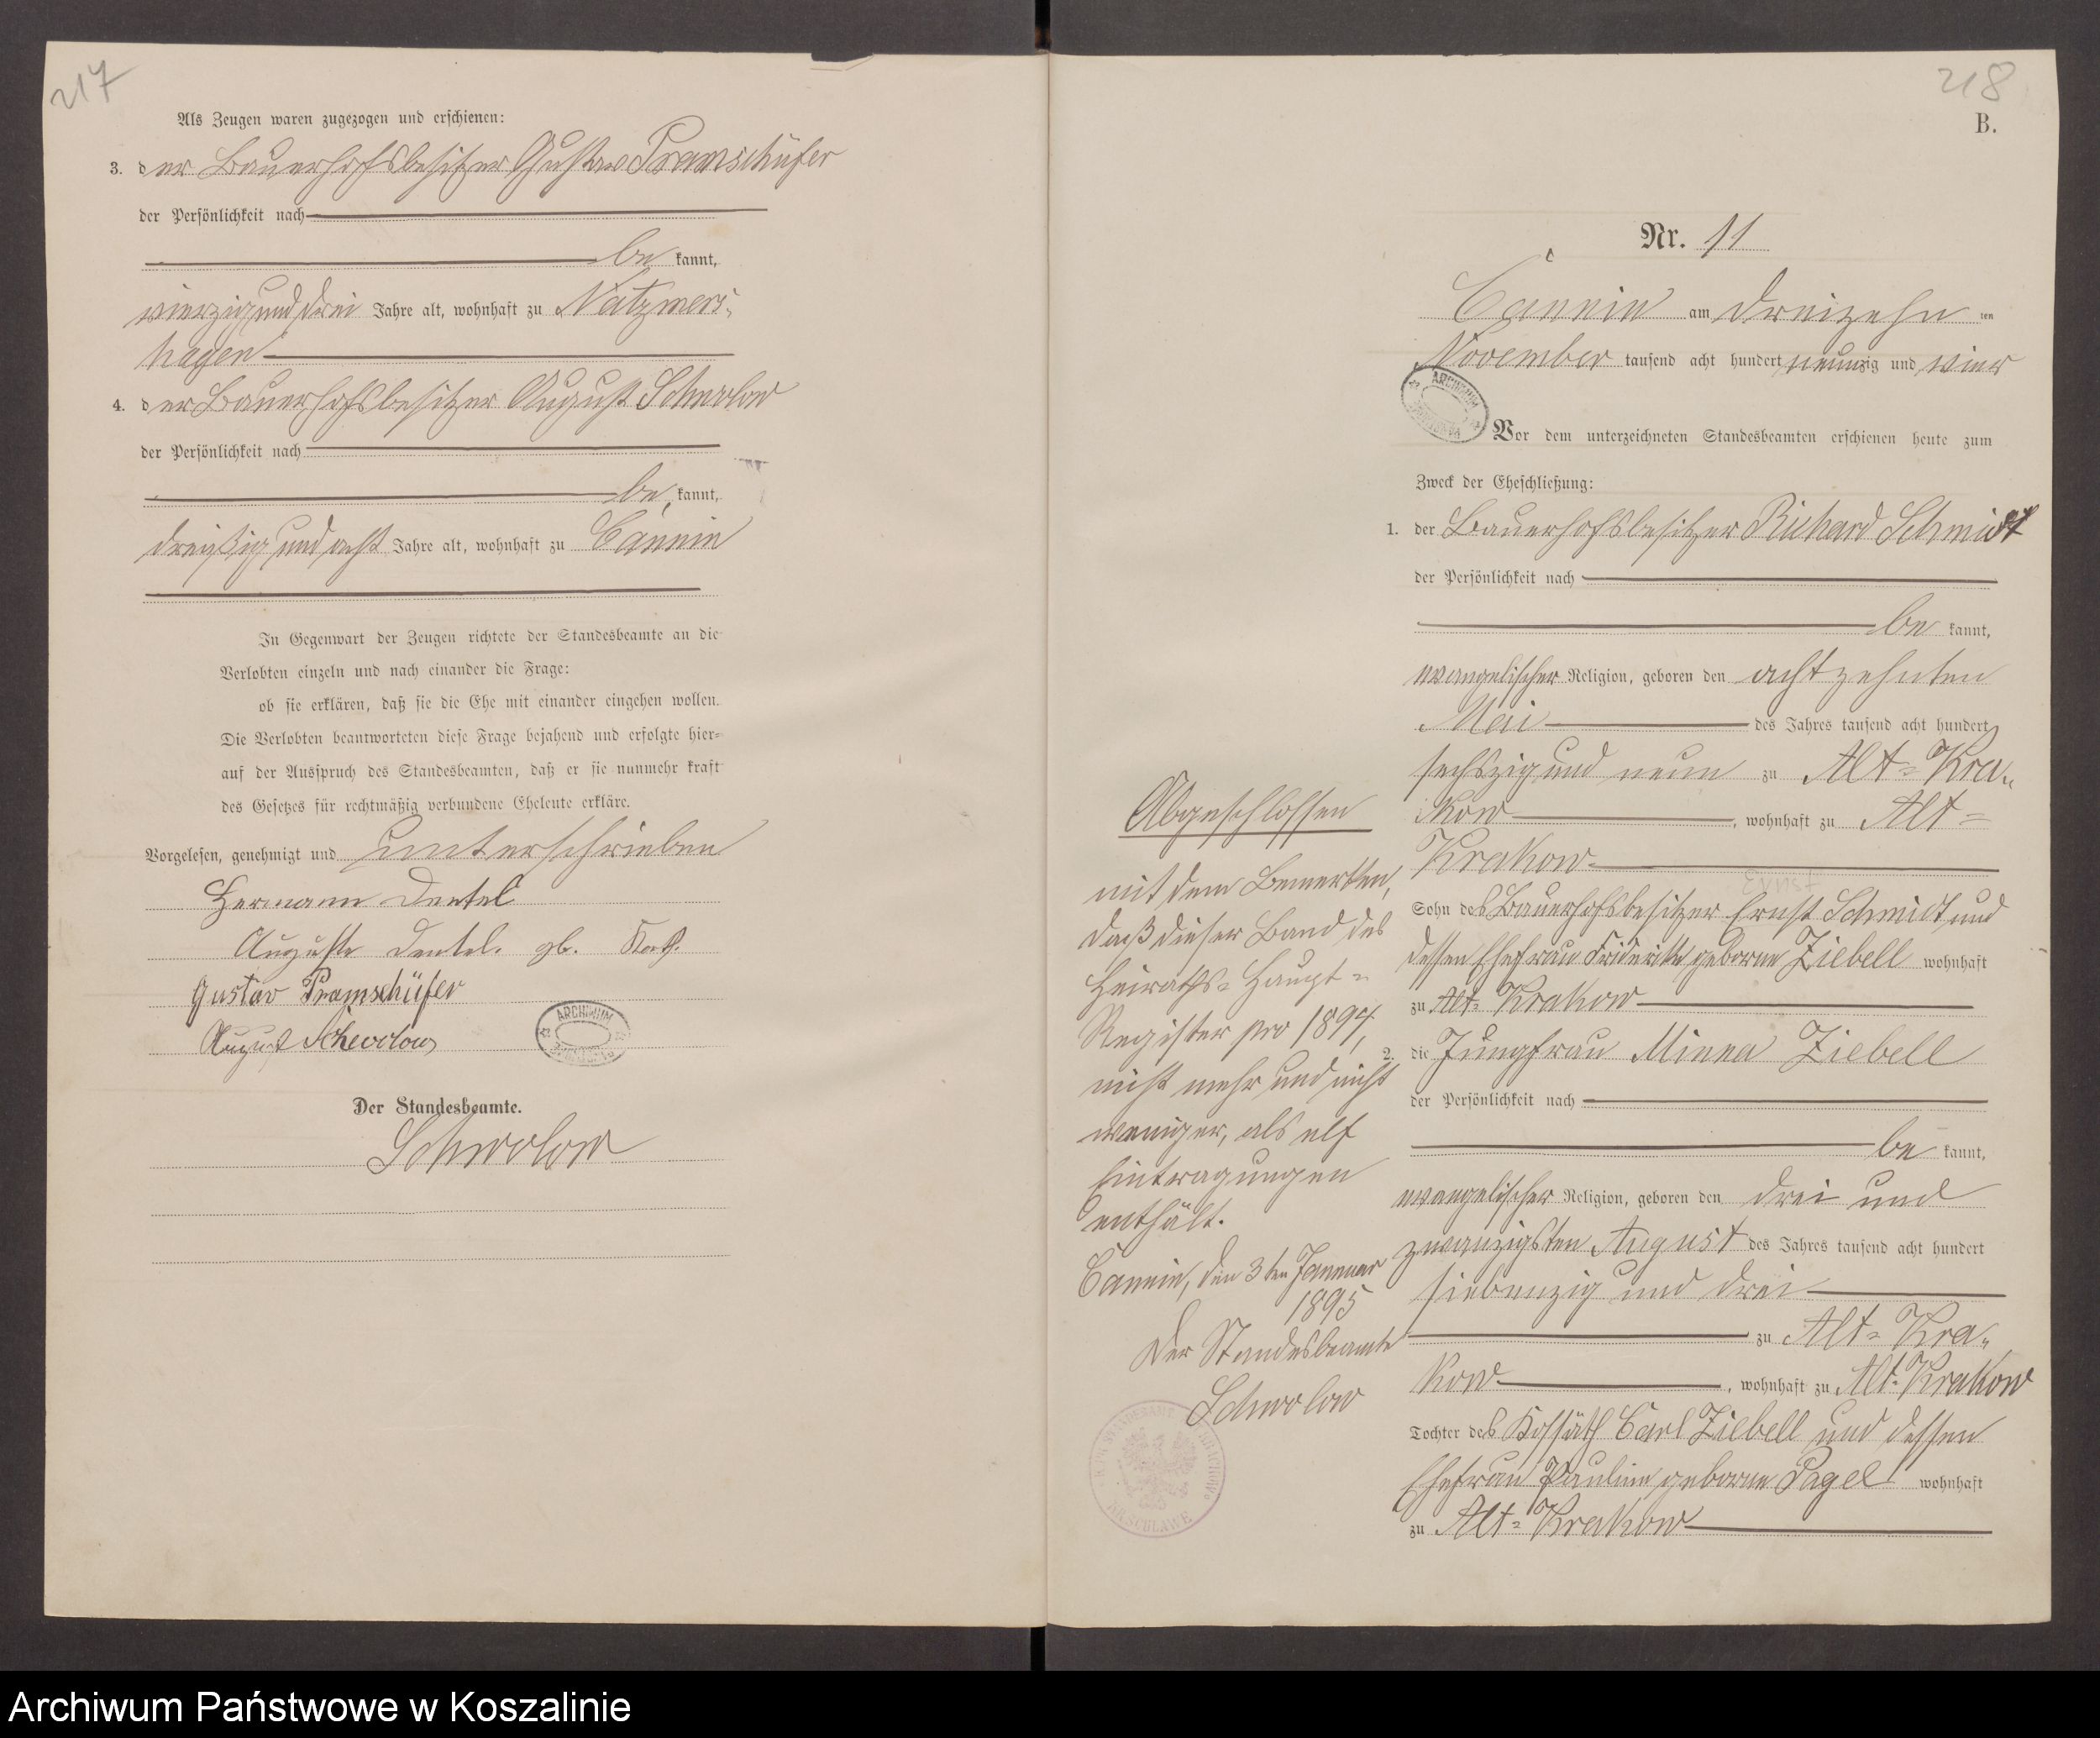 217
Als Zeugen waren zugezogen und erschienen:
3. der Bauerhofsbesitzer Gustav Pramschüfer
der Persönlichkeit nach
be kannt,
vierzig und drei Jahre alt, wohnhaft zu Natzmers-
hagen
4. der Bauerhofsbesitzer August Schwolow
der Persönlichkeit nach
be kannt,
dreißig und acht Jahre alt, wohnhaft zu Cannin
In Gegenwart der Zeugen richtete der Standesbeamte an die
Verlobten einzeln und nach einander die Frage:
ob sie erklären, daß sie die Ehe mit einander eingehen wollen.
Die Verlobten beantworteten diese Frage bejahend und erfolgte hier-
auf der Ausspruch des Standesbeamten, daß er sie nunmehr kraft
des Gesetzes für rechtmäßig verbundene Eheleute erkläre.
Vorgelesen, genehmigt und unterschrieben
Hermann Dentel
Auguste Dentel. gb.
Gustav Pramschüfer
August Schwolow
ARCHIWUM
Der Standesbeamte.
Schwolow
218
B.
Nr. 11
Cannin am dreizehn ten
November tausend acht hundert neunzig und vier
ARCHIWUM
Vor dem unterzeichneten Standesbeamten erschienen heute zum
Zweck der Eheschließung:
1. der Bauerhofsbesitzer Richard Schmidt
der Persönlichkeit nach
be kannt,
evangelischer Religion, geboren den achtzehnten
Mai des Jahres tausend acht hundert
sechszig und neun zu Alt-Kra-
kow, wohnhaft zu Alt-
Krakow
Ernst
Sohn des Bauerhofsbesitzer Ernst Schmidt und
dessen Ehefrau Friderike geborne Ziebell wohnhaft
zu Alt-Krakow
2. die Jungfrau Minna Ziebell
der Persönlichkeit nach
be kannt,
evangelischer Religion, geboren den drei und
zwanzigsten August des Jahres tausend acht hundert
siebenzig und drei
zu Alt-Kra-
kow, wohnhaft zu Alt-Krakow
Tochter des Kossäth Carl Ziebell und dessen
Ehefrau Pauline geborne Pagel wohnhaft
zu Alt-Krakow
Abgeschlossen
mit dem Bemerken,
daß dieser Band des
Heiraths-Haupt-
Register pro 1894,
nicht mehr und nicht
weniger, als elf
Eintragungen
enthält.
Cannin, den 3ten Januar
1895
Der Standesbeamte
Schwolow
Archiwum Państwowe w Koszalinie